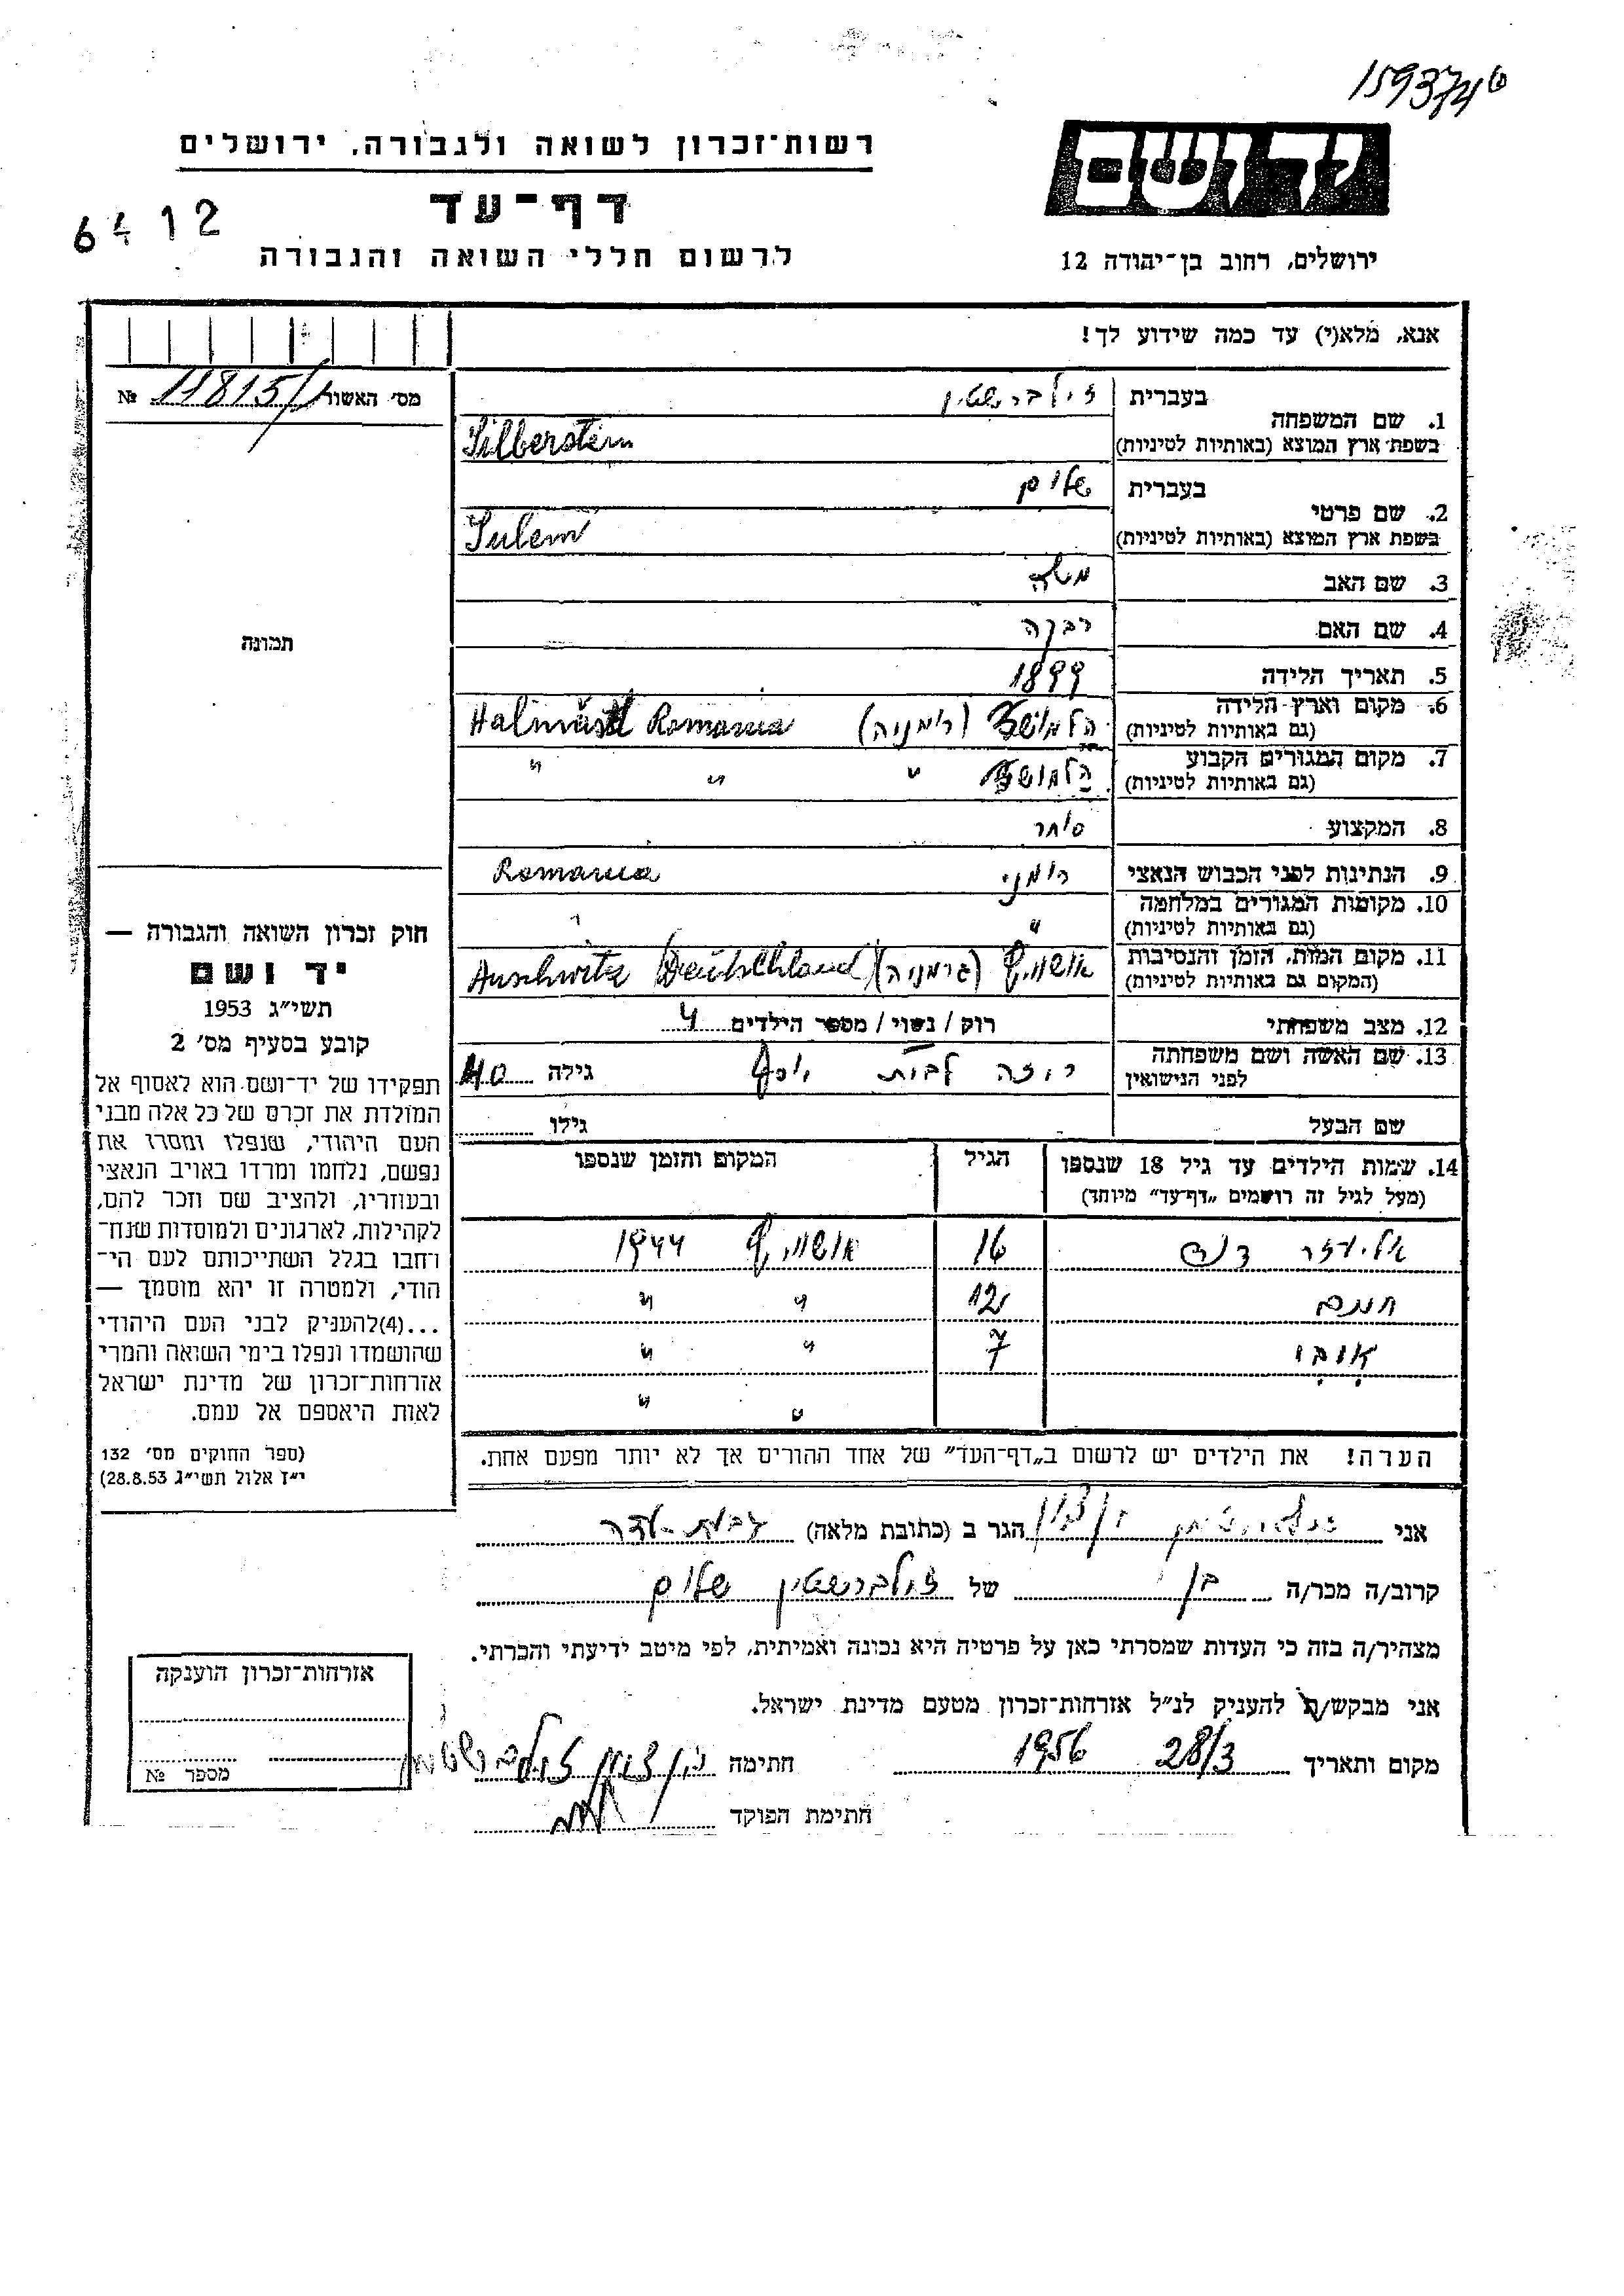 159374
יד ושם
רשות־זכרון לשואה ולגבורה, ירושלים
דף־עד
6412
לרשום חללי השואה והגבורה
ירושלים, רחוב בן־יהודה 12
אנא, מלא(י) עד כמה שידוע לך!
מס׳ האשור 11815/ №
1. שם המשפחה בעברית זילברשטין
בשפת ארץ המוצא (באותיות לטיניות) Silberstein
2. שם פרטי בעברית שלום
בשפת ארץ המוצא (באותיות לטיניות) Sulem
3. שם האב משה
4. שם האם רבקה
תמונה
5. תאריך הלידה 1899
6. מקום וארץ הלידה (רומניה) Romania
(גם באותיות לטיניות)
7. מקום המגורים הקבוע " " "
(גם באותיות לטיניות)
8. המקצוע סוחר
9. הנתינות לפני הכבוש הנאצי רומני Romania
10. מקומות המגורים במלחמה "
(גם באותיות לטיניות)
11. מקום המות, הזמן והנסיבות אושויץ (גרמניה) Auschwitz (Deutschland)
(המקום גם באותיות לטיניות)
12. מצב משפחתי רוק / נשוי / מספר הילדים 4
13. שם האשה ושם משפחתה רוזה לבית גילה 40
לפני הנישואין
שם הבעל גילו
14. שמות הילדים עד גיל 18 שנספו הגיל המקום והזמן שנספו
(מעל לגיל זה רושמים „דף־עד” מיוחד)
אליעזר 16 אושויץ 1944
נחום 12 " "
7 " "
" "
הערה! את הילדים יש לרשום ב„דף־העד” של אחד ההורים אך לא יותר מפעם אחת.
חוק זכרון השואה והגבורה —
יד ושם
תשי״ג 1953
קובע בסעיף מס׳ 2
תפקידו של יד־ושם הוא לאסוף אל
המולדת את זכרם של כל אלה מבני
העם היהודי, שנפלו ומסרו את
נפשם, נלחמו ומרדו באויב הנאצי
ובעוזריו, ולהציב שם וזכר להם,
לקהילות, לארגונים ולמוסדות שנח־
רבו בגלל השתייכותם לעם הי־
הודי, ולמטרה זו יהא מוסמך —
...(4)להעניק לבני העם היהודי
שהושמדו ונפלו בימי השואה והמרי
אזרחות־זכרון של מדינת ישראל
לאות היאספם אל עמם.
(ספר החוקים מס׳ 132
י״ז אלול תשי״ג 28.8.53)
אני בן ציון הגר ב (כתובת מלאה)
קרוב/ה מכר/ה בן של זילברשטין שלום
מצהיר/ה בזה כי העדות שמסרתי כאן על פרטיה היא נכונה ואמיתית, לפי מיטב ידיעתי והכרתי.
אני מבקש/ת להעניק לנ״ל אזרחות־זכרון מטעם מדינת ישראל.
מקום ותאריך 28/3 1956 חתימה בן ציון זילברשטין
חתימת הפוקד
אזרחות־זכרון הוענקה
מספר №